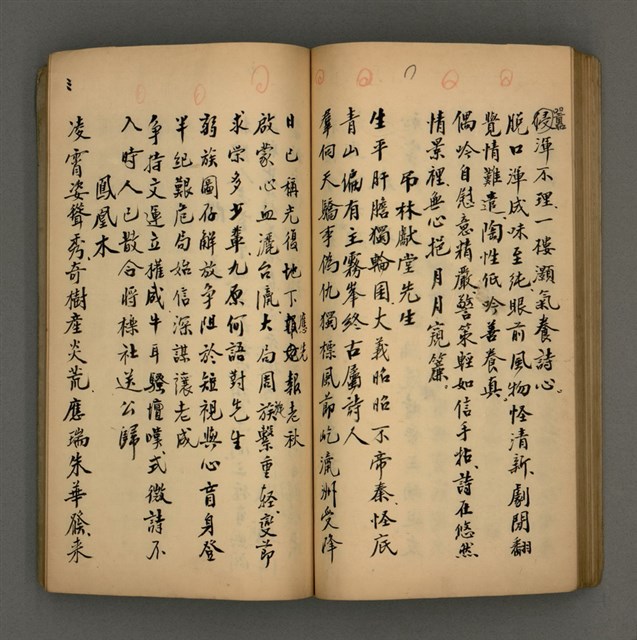 渾不理一樓灝氣養詩心
脫口渾成味至純眼前風物怪清新劇閒翻
覺情難遣陶性低吟善養真
偶吟自慰意精嚴警策輕如信手拈詩在悠然
情景裡無心挹月月窺簾
弔林獻堂先生
生平肝膽獨輪囷大義昭昭不帝秦怪底
青山偏有主霧峯終古屬詩人
羣伺天驕事偽仇獨標風節屹瀛洲受降
日已稱光復地下應先報老秋
啟蒙心血灑台瀛大局周旋繫重輕變節
求榮多少輩九原何語對先生
弱族圖存解放爭阻於短視與心盲身登
半紀艱危局始信深謀讓老成
爭持文運立摧咸牛耳騷壇嘆式微詩不
入時人已散合將櫟社送公歸
鳳凰木
凌霄姿聳秀奇樹產炎荒應瑞朱華發來
三